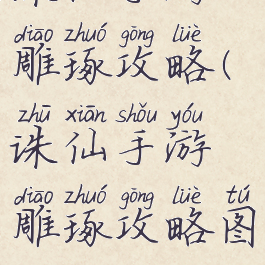 diāo zhuó gōng lüè
雕琢攻略(
zhū xiān shǒu yóu
诛仙手游
diāo zhuó gōng lüè tú
雕琢攻略图